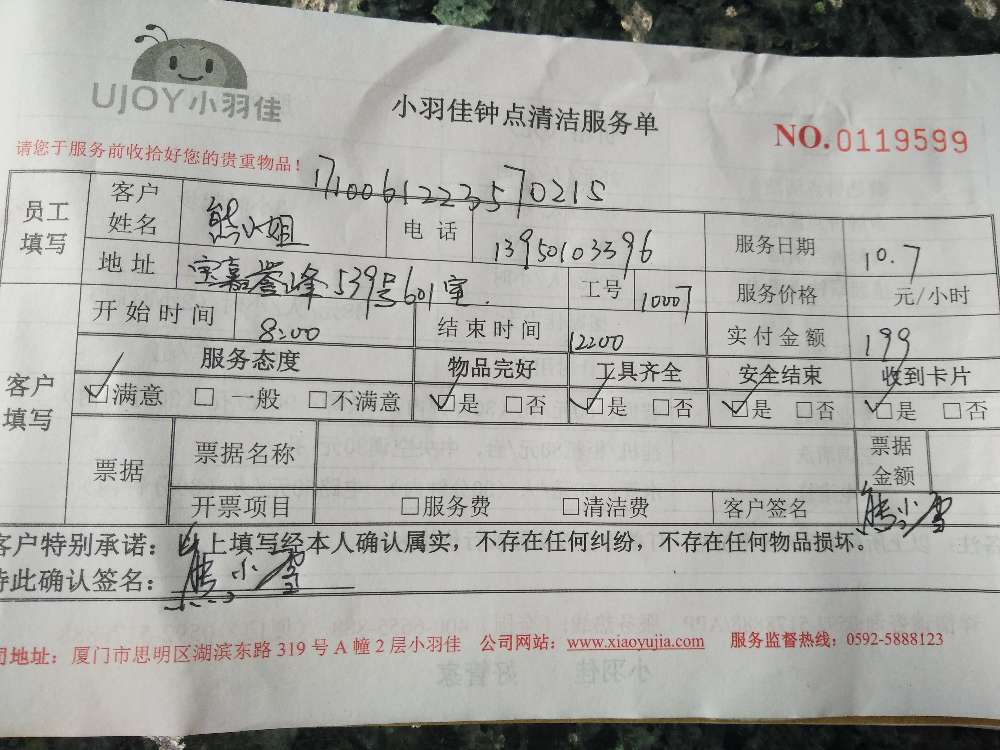 UJOY小羽佳
小羽佳钟点清洁服务单
NO.0119599
请您于服务前收拾好您的贵重物品！
171006122357021S
员工填写 客户姓名 熊小姐 电话 13950103396 服务日期 10.7
地址 宝嘉誉峰539号601室. 工号 10007 服务价格 元/小时
客户填写 开始时间 8:00 结束时间 12:00 实付金额 199
服务态度 物品完好 工具齐全 安全结束 收到卡片
☑满意 □一般 □不满意 ☑是 □否 ☑是 □否 ☑是 □否 ☑是 □否
票据 票据名称 票据金额
开票项目 □服务费 □清洁费 客户签名 熊小雪
客户特别承诺：以上填写经本人确认属实，不存在任何纠纷，不存在任何物品损坏。
特此确认签名：熊小雪
司地址：厦门市思明区湖滨东路319号A幢2层小羽佳 公司网站：www.xiaoyujia.com 服务监督热线：0592-5888123